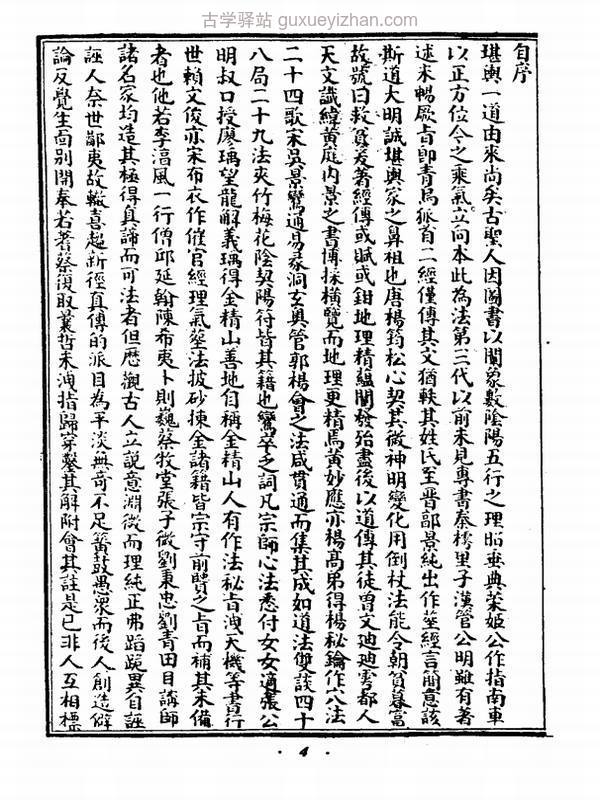 古学驿站 guxueyizhan.com
自序
堪輿一道由來尚矣古聖人因圖書以闡象數陰陽五行之理昭垂典籍姬公作指南車
以正方位今之乘氣立向本此為法第三代以前未見專書秦樗里子漢管公明雖有著
述未暢厥旨即青烏狐首二經僅傳其文猶軼其姓氏至晋郭景純出作塟經言簡意該
斯道大明誠堪輿家之鼻祖也唐楊筠松心契其微神明變化用倒杖法能令朝貧暮富
故號曰救貧爰著經傳或賦或鉗地理精蘊闡發殆盡後以道傳其徒曾文迪迪雩都人
天文讖緯黃庭內景之書博採橫覽而地理更精焉黃妙應亦楊高弟得楊秘鑰作穴法
二十四歌宋吳景鸞通易彖洞玄奧管郭楊曾之法咸貫通而集其成如道法雙談四十
八局二十九法夾竹梅花陰契陽符皆其籍也鸞卒乏詞凡宗師心法悉付女女適張公
明叔口授廖瑀望龍解義瑀得金精山善地自稱金精山人有作法秘旨洩天機等書行
世賴文俊亦宋布衣作催官經理氣塟法披砂揀金諸籍皆宗守前贒之旨而補其未備
者也他若李淳風一行僧邱延翰陳希夷卜則巍蔡牧堂張子微劉秉忠劉青田目講師
諸名家均造其極得真諦而可法者但歷觀古人立説意淵微而理純正弗蹈詭異自誣
誣人奈世鄙夷故轍喜趨新徑真傳的派目為平淡無奇不足簧鼓愚衆而後人創造僻
論反覺生面别開奉若蓍蔡復取曩哲未洩指歸穿鑿其解附會其註是已非人互相標
·4·